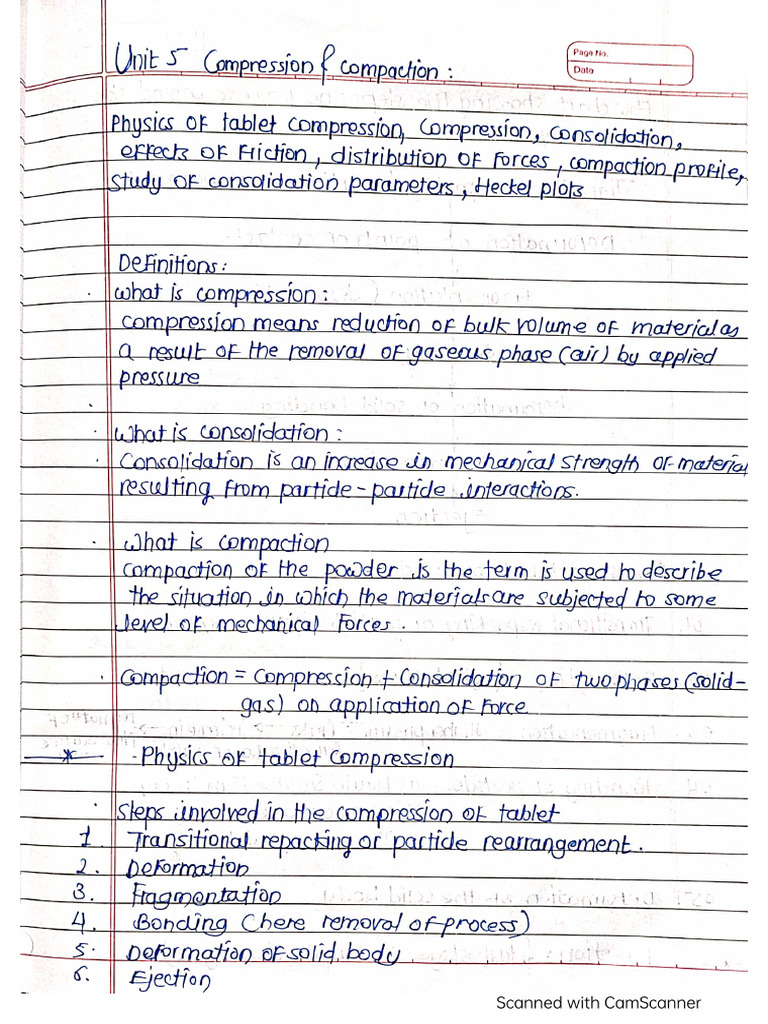 Unit 5 Compression & compaction :
Page No.
Date
Physics of tablet compression, compression, consolidation,
effects of friction, distribution of forces, compaction profile,
study of consolidation parameters, Heckel plots
Definitions:
what is compression:
compression means reduction of bulk volume of material as
a result of the removal of gaseous phase (air) by applied
pressure
what is consolidation:
Consolidation is an increase in mechanical strength of material
resulting from particle-particle interactions.
What is compaction
compaction of the powder is the term is used to describe
the situation in which the materials are subjected to some
level of mechanical forces.
Compaction = Compression + Consolidation of two phases (solid-
gas) on application of force
* Physics of tablet compression
Steps involved in the compression of tablet
1. Transitional repacking or particle rearrangement.
2. Deformation
3. Fragmentation
4. Bonding (here removal of process)
5. Deformation of solid body
6. Ejection
Scanned with CamScanner